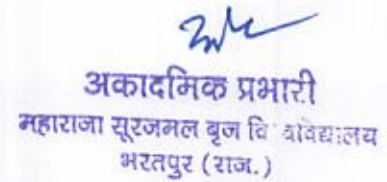 अकादमिक प्रभारी
महाराजा सूरजमल बृज वि
भरतपुर (राज.)